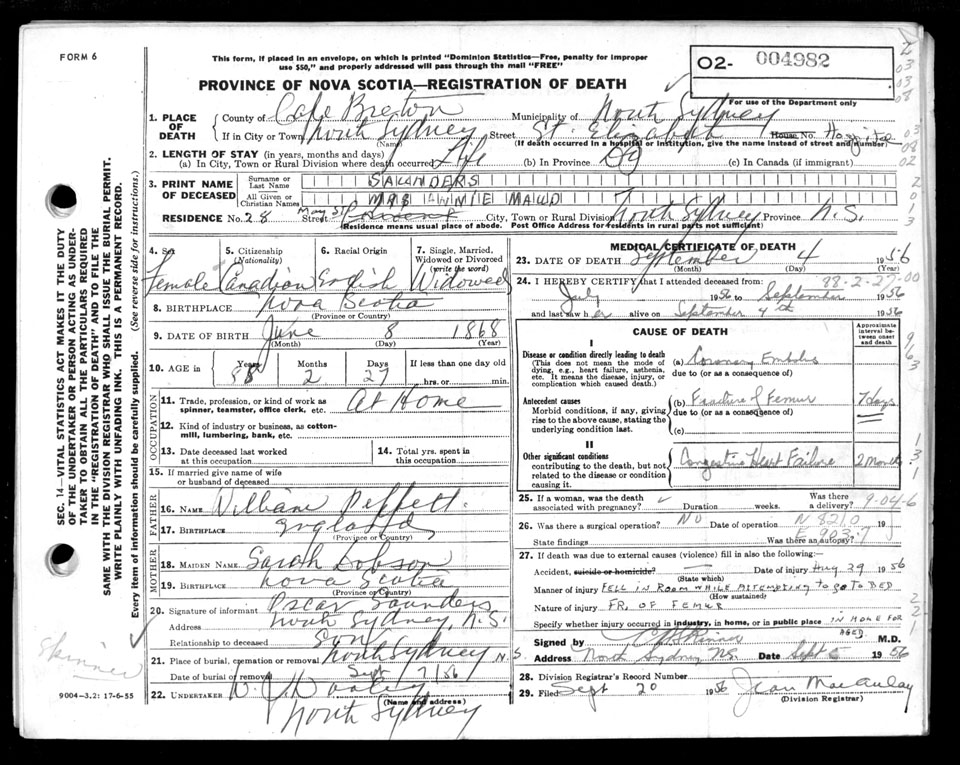 FORM 6
This form, if placed in an envelope, on which is printed "Dominion Statistics—Free, penalty for improper
use $50," and properly addressed will pass through the mail "FREE"
O2- 004982
For use of the Department only
PROVINCE OF NOVA SCOTIA—REGISTRATION OF DEATH
1. PLACE OF DEATH
County of Cape Breton Municipality of North Sydney
If in City or Town North Sydney Street St. Elizabeth House No. Hospital
(Name) (If death occurred in a hospital or institution, give the name instead of street and number)
2. LENGTH OF STAY (in years, months and days)
(a) In City, Town or Rural Division where death occurred Life (b) In Province (c) In Canada (if immigrant)
3. PRINT NAME OF DECEASED
Surname or Last Name SAUNDERS
All Given or Christian Names MRS ANNIE MAUD
RESIDENCE No. 28 Street May St City, Town or Rural Division North Sydney Province N.S.
(Residence means usual place of abode. Post Office Address for residents in rural parts not sufficient)
4. Sex Female
5. Citizenship (Nationality) Canadian
6. Racial Origin English
7. Single, Married, Widowed or Divorced (write the word) Widowed
8. BIRTHPLACE Nova Scotia
(Province or Country)
9. DATE OF BIRTH June 8 1868
(Month) (Day) (Year)
10. AGE in Years 88 Months 2 Days 27 If less than one day old
hrs. or min.
OCCUPATION
11. Trade, profession, or kind of work as spinner, teamster, office clerk, etc. At Home
12. Kind of industry or business, as cotton-mill, lumbering, bank, etc.
13. Date deceased last worked at this occupation
14. Total yrs. spent in this occupation
15. If married give name of wife or husband of deceased
FATHER
16. NAME William Peffett
17. BIRTHPLACE England
(Province or Country)
MOTHER
18. MAIDEN NAME Sarah Dobson
19. BIRTHPLACE Nova Scotia
(Province or Country)
20. Signature of informant Oscar Saunders
Address North Sydney, N.S.
Relationship to deceased Son
21. Place of burial, cremation or removal North Sydney N.S.
Date of burial or removal Sept 7/56
22. UNDERTAKER W. J. Dooley
(Name and address)
North Sydney
MEDICAL CERTIFICATE OF DEATH
23. DATE OF DEATH September 4 1956
(Month) (Day) (Year)
24. I HEREBY CERTIFY that I attended deceased from 88-2-27-00
July 1956 to September 1956
and last saw her alive on September 4th 1956
CAUSE OF DEATH
Approximate interval between onset and death
I
Disease or condition directly leading to death
(This does not mean the mode of dying, e.g., heart failure, asthenia, etc. It means the disease, injury, or complication which caused death.)
(a) Coronary Embolus
due to (or as a consequence of)
Antecedent causes
Morbid conditions, if any, giving rise to the above cause, stating the underlying condition last.
(b) Fracture of Femur 7 days
due to (or as a consequence of)
(c)
II
Other significant conditions
contributing to the death, but not related to the disease or condition causing it.
Congestive Heart Failure 2 months
25. If a woman, was the death associated with pregnancy? Duration weeks. Was there a delivery? 9-04-6
26. Was there a surgical operation? No Date of operation N 821.0 19
State findings E 903.7 Was there an autopsy?
27. If death was due to external causes (violence) fill in also the following:—
Accident, suicide or homicide? Date of injury Aug 29 1956
(State which)
Manner of injury FELL IN ROOM WHILE ATTEMPTING TO GO TO BED
(How sustained)
Nature of injury FR. OF FEMUR
Specify whether injury occurred in industry, in home, or in public place IN HOME FOR AGED
Signed by Skinner M.D.
Address North Sydney N.S. Date Sept 5 1956
28. Division Registrar's Record Number
29. Filed Sept 20 1956 Jean MacAulay
(Division Registrar)
SEC. 14—VITAL STATISTICS ACT MAKES IT THE DUTY
OF THE UNDERTAKER OR PERSON ACTING AS UNDER-
TAKER TO OBTAIN ALL THE PARTICULARS REQUIRED
IN THE "REGISTRATION OF DEATH" AND TO FILE THE
SAME WITH THE DIVISION REGISTRAR WHO SHALL ISSUE THE BURIAL PERMIT.
WRITE PLAINLY WITH UNFADING INK. THIS IS A PERMANENT RECORD.
Every item of information should be carefully supplied. (See reverse side for instructions.)
Skinner
9004-3.2: 17-6-55